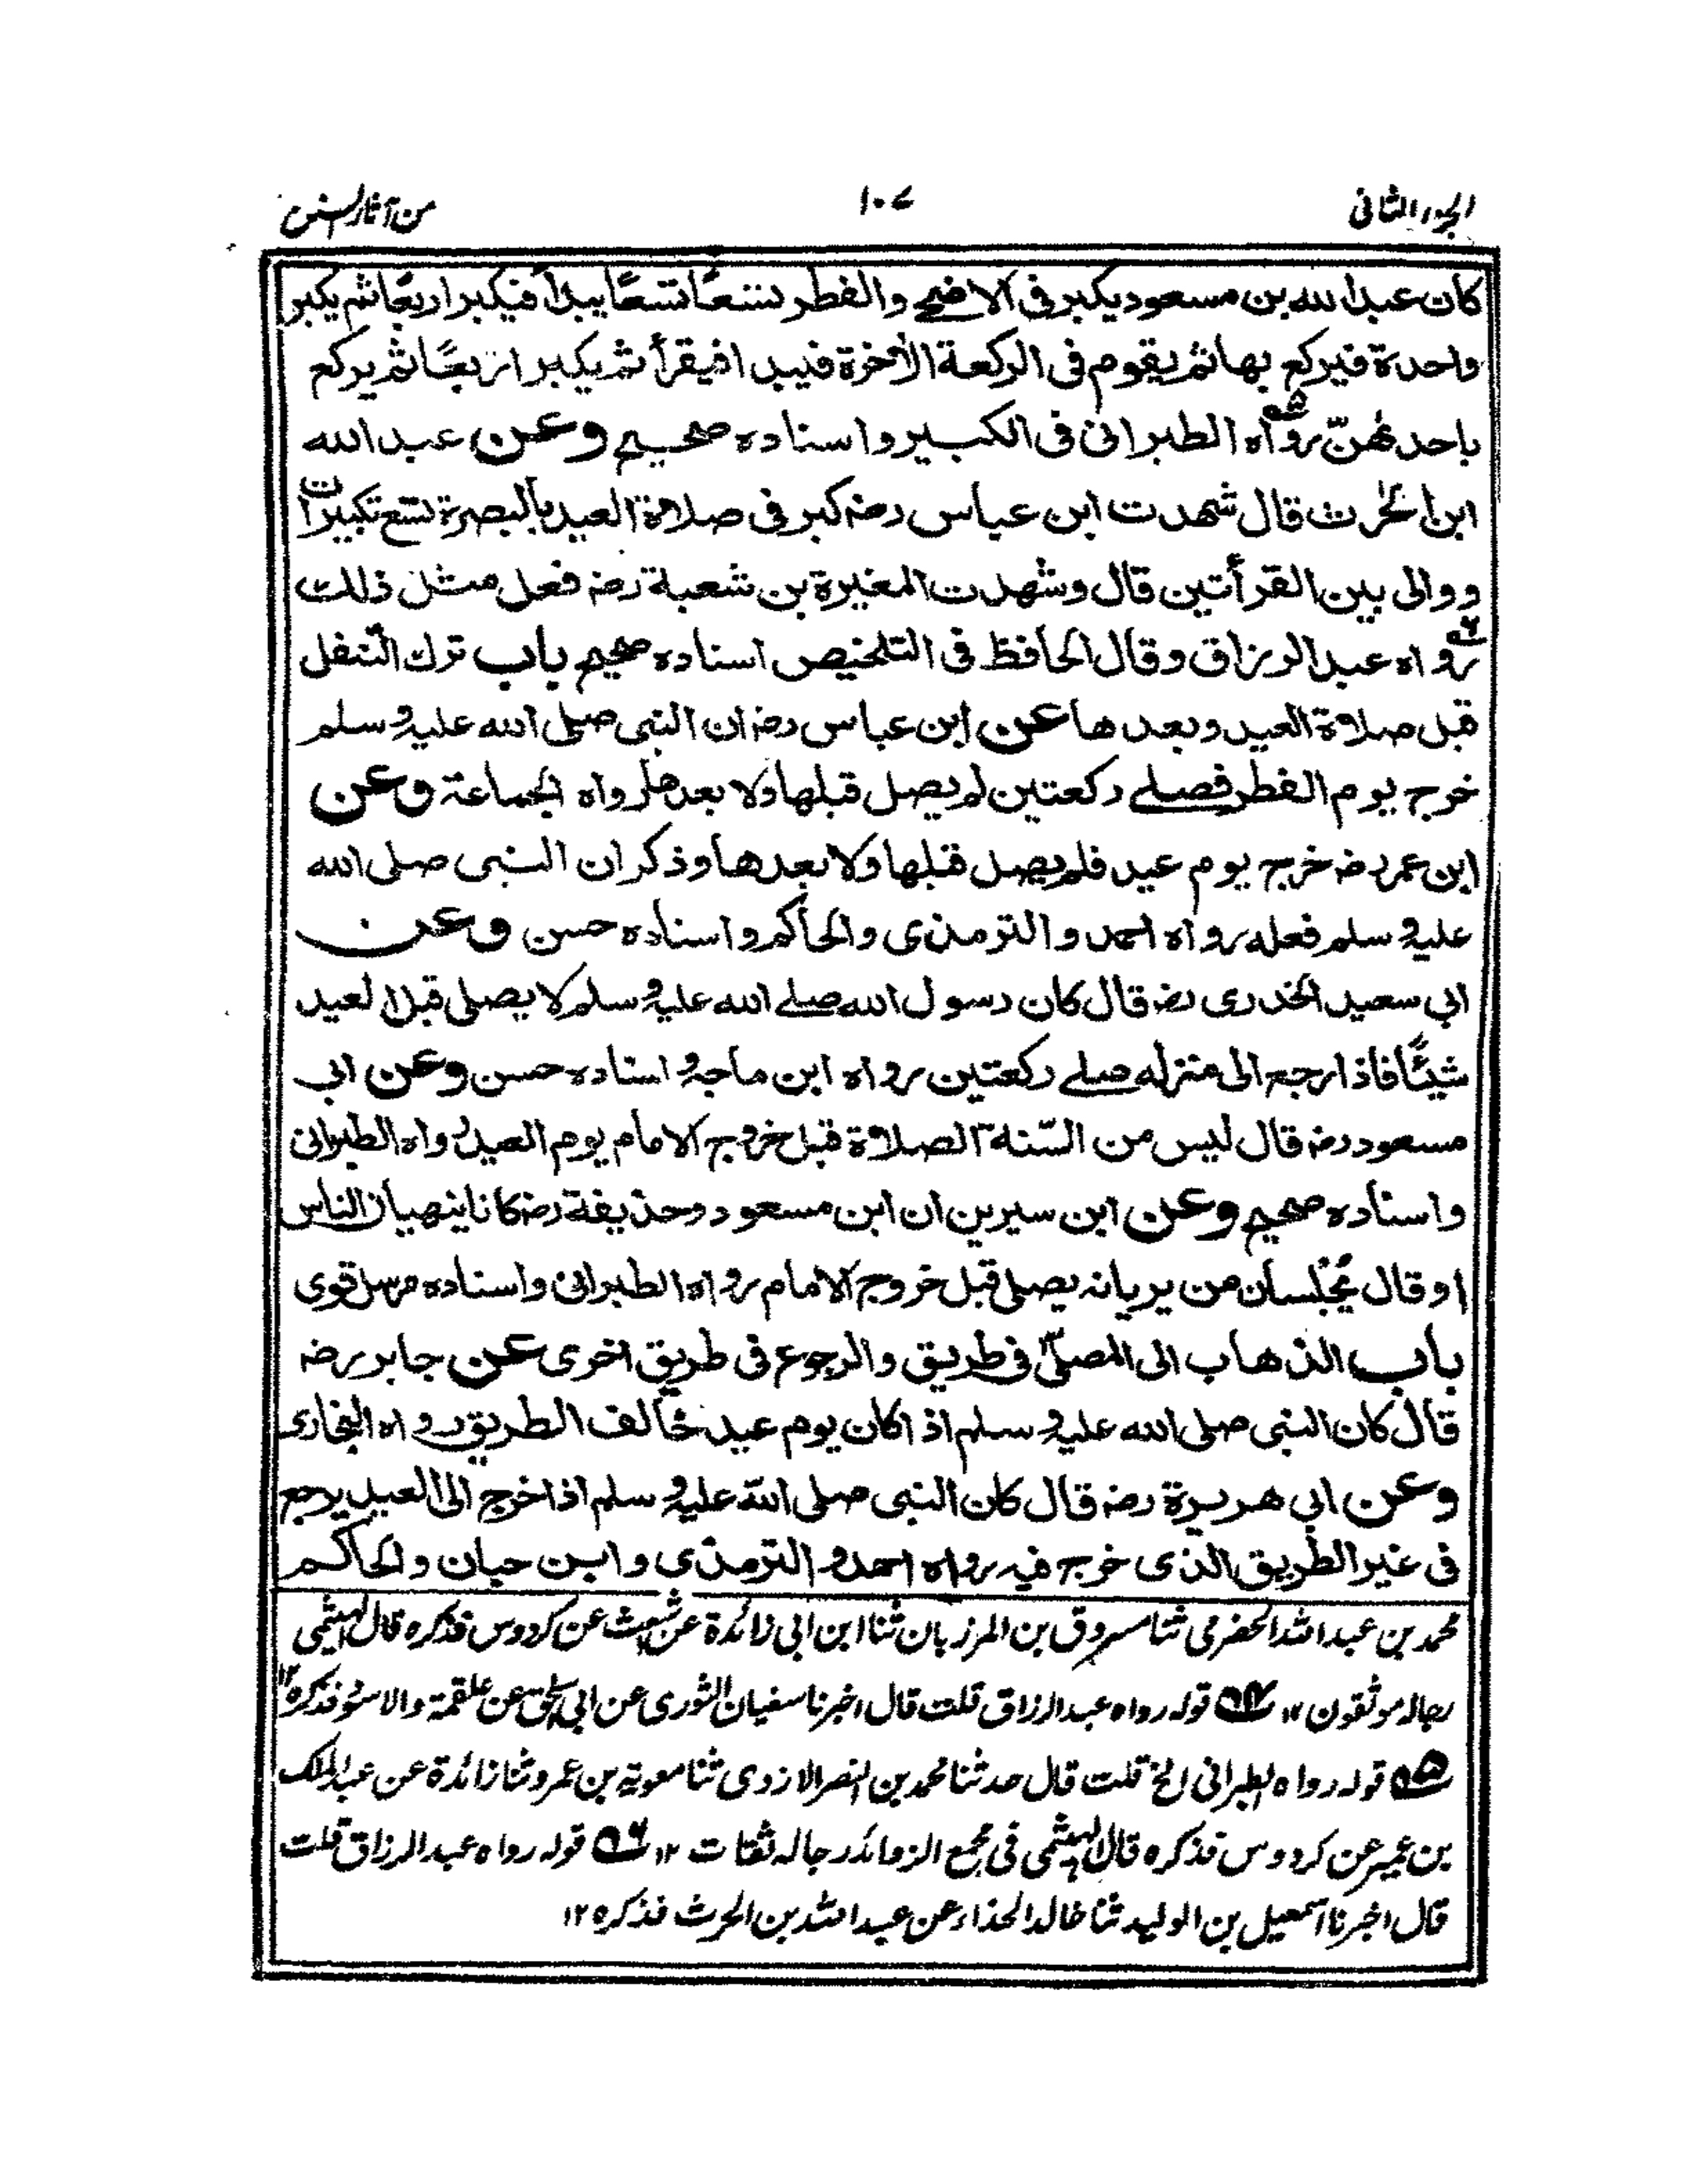 الجزء الثانى ١٠٧ من آثار السنن
كان عبد الله بن مسعود يكبر فى الاضحے والفطر تسعًا تسعًا يبدأ فيكبر اربعًا ثم يكبر
واحدة فيركع بها ثم يقوم فى الركعة الاٰخرة فيبدا فيقرأ ثم يكبر اربعًا ثم يركع
باحدٰهنّ رواه الطبرانى فى الكبير واسناده صحيح وعن عبد الله
ابن الحٰرث قال شهدت ابن عباس رضـ كبر فى صلاة العيد بالبصرة تسع تكبيرات
ووالى بين القرأتين قال وشهدت المغيرة بن شعبة رضـ فعل مثل ذلك
رواه عبد الرزاق وقال الحافظ فى التلخيص اسناده صحيح باب ترك التنفل
قبل صلاة العيد وبعدها عن ابن عباس رضـ ان النبى صلى الله عليه وسلم
خرج يوم الفطر فصلے ركعتين لم يصل قبلها ولا بعدها رواه الجماعة وعن
ابن عمر رضـ خرج يوم عيد فلم يصل قبلها ولا بعدها وذكر ان النبى صلى الله
عليه وسلم فعله رواه احمد والترمذى والحاكم واسناده حسن وعن
ابى سعيد الخدرى رضـ قال كان رسول الله صلے الله عليه وسلم لا يصلى قبل العيد
شيئًا فاذا رجع الى منزله صلے ركعتين رواه ابن ماجه واسناده حسن وعن ابى
مسعود رضـ قال ليس من السّنة الصلاة قبل خروج الامام يوم العيد رواه الطبرانى
واسناده صحيح وعن ابن سيرين ان ابن مسعود وحذيفة رضـ كانا ينهيان الناس
او قال يُجْلسان من يريانه يصلى قبل خروج الامام رواه الطبرانى واسناده مرسل قوى
باب الذهاب الى المصلّى فى طريق والرجوع فى طريق اخرى عن جابر رضـ
قال كان النبى صلى الله عليه وسلم اذا كان يوم عيد خالف الطريق رواه البخارى
وعن ابى هريرة رضـ قال كان النبى صلى الله عليه وسلم اذا خرج الى العيد يرجع
فى غير الطريق الذى خرج فيه رواه احمد والترمذى وابن حبان والحاكم
محمد بن عبد الله الحضرمى ثنا مسروق بن المرزبان ثنا ابن ابى زائدة عن اشعث عن كردوس فذكره قال الهيثمى
رجاله موثقون ١٢ قوله رواه عبد الرزاق قلت قال اخبرنا سفيان الثورى عن ابى اسحٰق عن علقمة والاسود فذكره ١٢
قوله رواه الطبرانى الخ قلت قال حدثنا محمد بن النضر الازدى ثنا معوية بن عمرو ثنا زائدة عن عبد الملك
بن عمير عن كردوس فذكره قال الهيثمى فى مجمع الزوائد رجاله ثقات ١٢ قوله رواه عبد الرزاق قلت
قال اخبرنا اسمعيل بن الوليد ثنا خالد الحذاء عن عبد الله بن الحرث فذكره ١٢